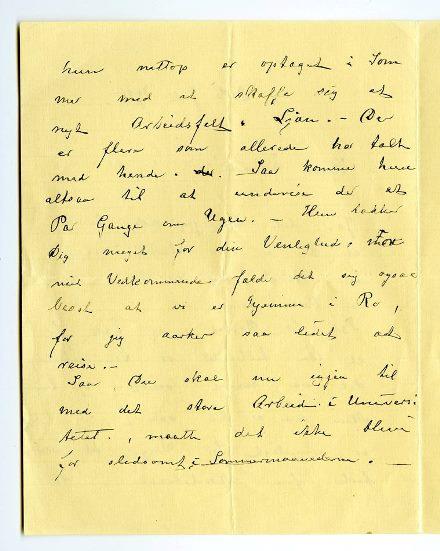 hun nettop er optaget i Som
mer med at skaffe sig et
nyt Arbeidsfelt. Ljan. – Der
er flere som allerede har talt
med hende. – Saa komme hun
altsaa til at undervise der et
Par Gange om Ugen. – Hun takker
Dig meget for din Venlighed. For
mit Vedkommende falde det sig ogsaa
beest at vi er hjemme i Ro,
for jeg aarker saa lidet at
reise. –
Saa, Du skal nu igjen til
med det store Arbeid i Universi-
tetet., maatte det ikke blive
for slidsomt i Sommermaanederne. –